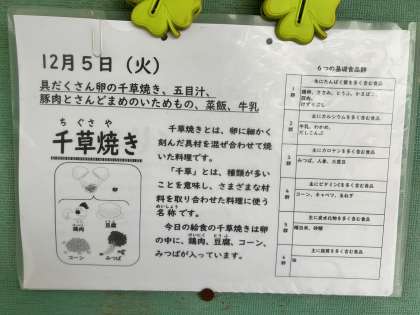 12月5日（火）
具だくさん卵の千草焼き、五目汁、
豚肉とさんどまめのいためもの、菜飯、牛乳
ちぐさや
千草焼き
鶏肉
豆腐
コーン
みつば
千草焼きとは、卵に細かく
刻んだ具材を混ぜ合わせて焼
いた料理です。
「千草」とは、種類が多い
ことを意味し、さまざまな材
料を取り合わせた料理に使う
めいしょう
名称です。
今日の給食の千草焼きは卵
けいにく とうふ
の中に、鶏肉、豆腐、コーン、
みつばが入っています。
6つの基礎食品群
1群
主にたんぱく質を多く含む食品
鶏卵、ささみ、とうふ、かまぼこ、
豚肉、
けずりぶし
2群
主にカルシウムを多く含む食品
牛乳、わかめ、
だしこんぶ
3群
主にカロテンを多く含む食品
みつば、人参、大豆目
4群
主にビタミンCを多く含む食品
コーン、キャベツ、玉ねぎ
5群
主に炭水化物を多く含む食品
精白米、砂糖
6群
主に脂質を多く含む食品
油